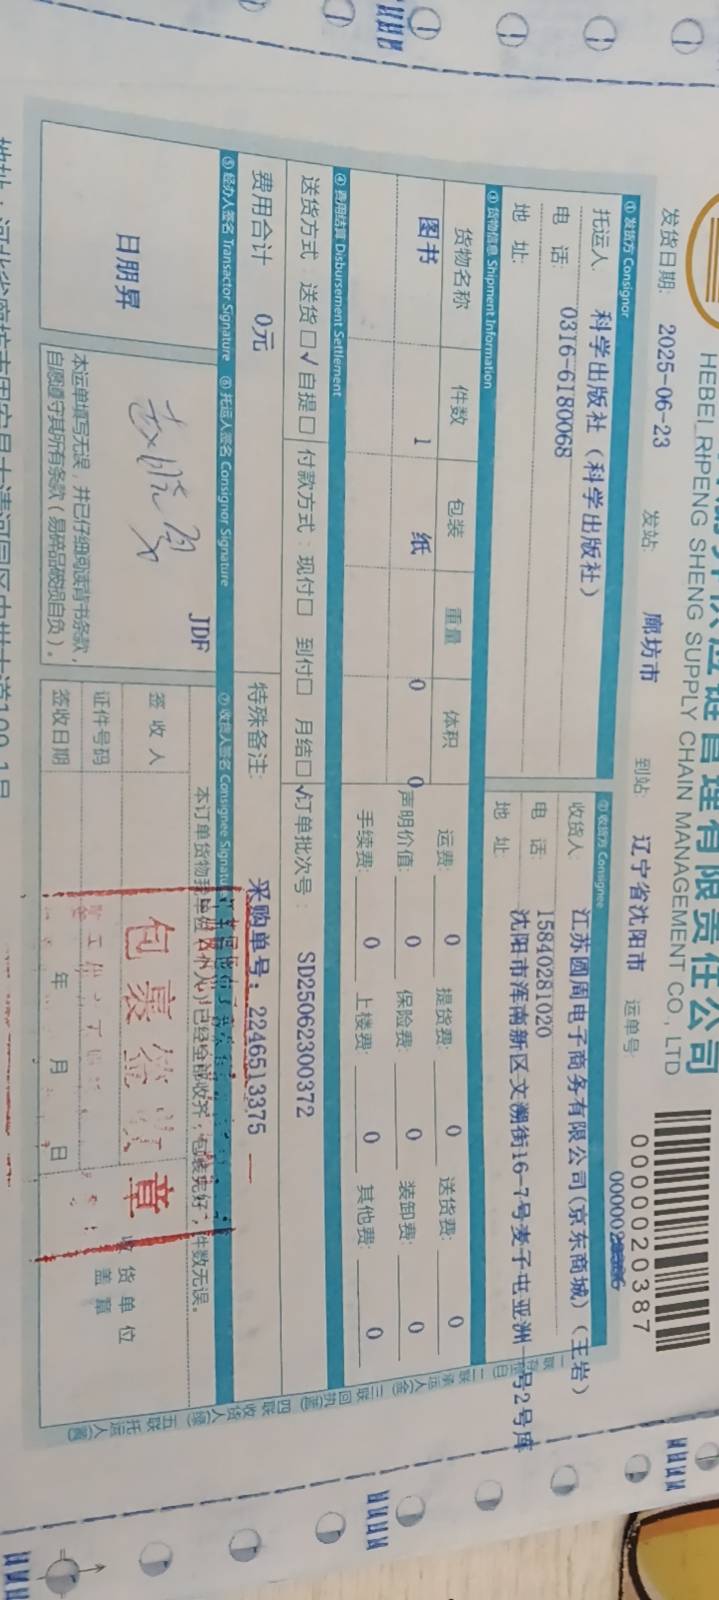 供应链管理有限责任公司
HEBEI RIPENG SHENG SUPPLY CHAIN MANAGEMENT CO., LTD
发货日期: 2025-06-23 发站: 廊坊市 到站: 辽宁省沈阳市 运单号: 0000020387
① 发货方 Consignor ② 收货方 Consignee
托运人: 科学出版社 (科学出版社) 收货人: 江苏圆周电子商务有限公司(京东商城) (王岩)
电 话: 0316-6180068 电 话: 15840281020
地 址: 地 址: 沈阳市浑南新区文溯街16-7号麦子屯亚洲一号2号库
③ 货物信息 Shipment Information
货物名称 件数 包装 重量 体积 运费: 0 提货费: 0 送货费: 0
图书 1 纸 0 0 声明价值: 0 保险费: 0 装卸费: 0
手续费: 0 上楼费: 0 其他费: 0
④ 费用结算 Disbursement Settlement
送货方式: 送货□√ 自提□ 付款方式: 现付□ 到付□ 月结□√ 订单批次号: SD25062300372
费用合计 0元 特殊备注: 采购单号: 2246513375
⑤ 经办人签名 Transactor Signature ⑥ 托运人签名 Consignor Signature ⑦ 收货人签名 Consignee Signatu
日朋昇
JDF
本运单填写无误,并已仔细阅读背书条款,
自愿遵守其所有条款(易碎品破损自负)。
本订单货物我单位(本人)已经全部收齐,包装完好,件数无误。
签 收 人
证件号码
签收日期 年 月 日
收货单位
盖 章
包裹签收章
一联存根(白) 二联承运人(金) 三联回执(蓝) 四联收货人(绿) 五联托运人(黄)